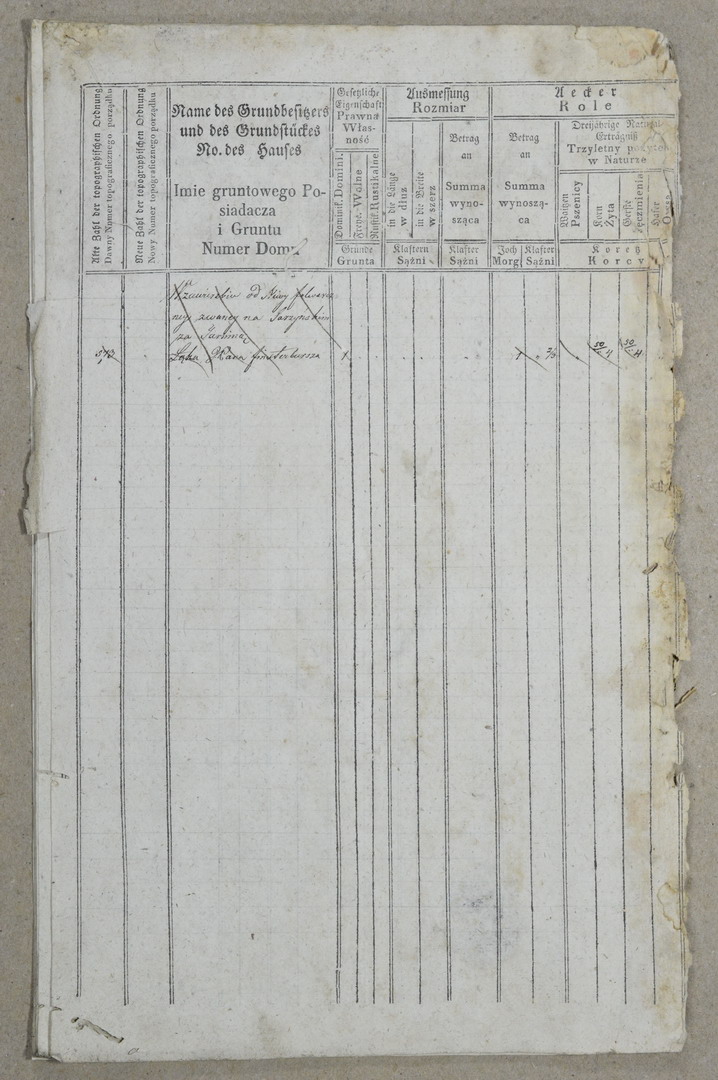 Alte Zahl der topographischen Ordnung
Dawny Numer topograficznego porządku
Neue Zahl der topographischen Ordnung
Nowy Numer topograficznego porządku
Name des Grundbesitzers
und des Grundstückes
No. des Hauses
Imie gruntowego Po-
siadacza
i Gruntu
Numer Domu
Gesetzliche
Eigenschaft
Prawna
Włas-
ność
Dominik. Domini.
Freye. Wolne
Rustik. Rustikalne
Gründe
Grunta
Ausmessung
Rozmiar
in die Länge
w dłuz
in die Breite
w szerz
Klaftern
Sążni
Betrag
an
Summa
wyno-
sząca
Klafter
Sążni
Aecker
Role
Betrag
an
Summa
wynoszą-
ca
Joch
Morg
Klafter
Sążni
Dreijährige Natural
Erträgniß
Trzyletny pożytek
w Naturze
Waitzen
Pszenicy
Korn
Żyta
Gerste
Jęczmienia
Hafer
Koretz
Korcy
od Niwy
zwaney na
za